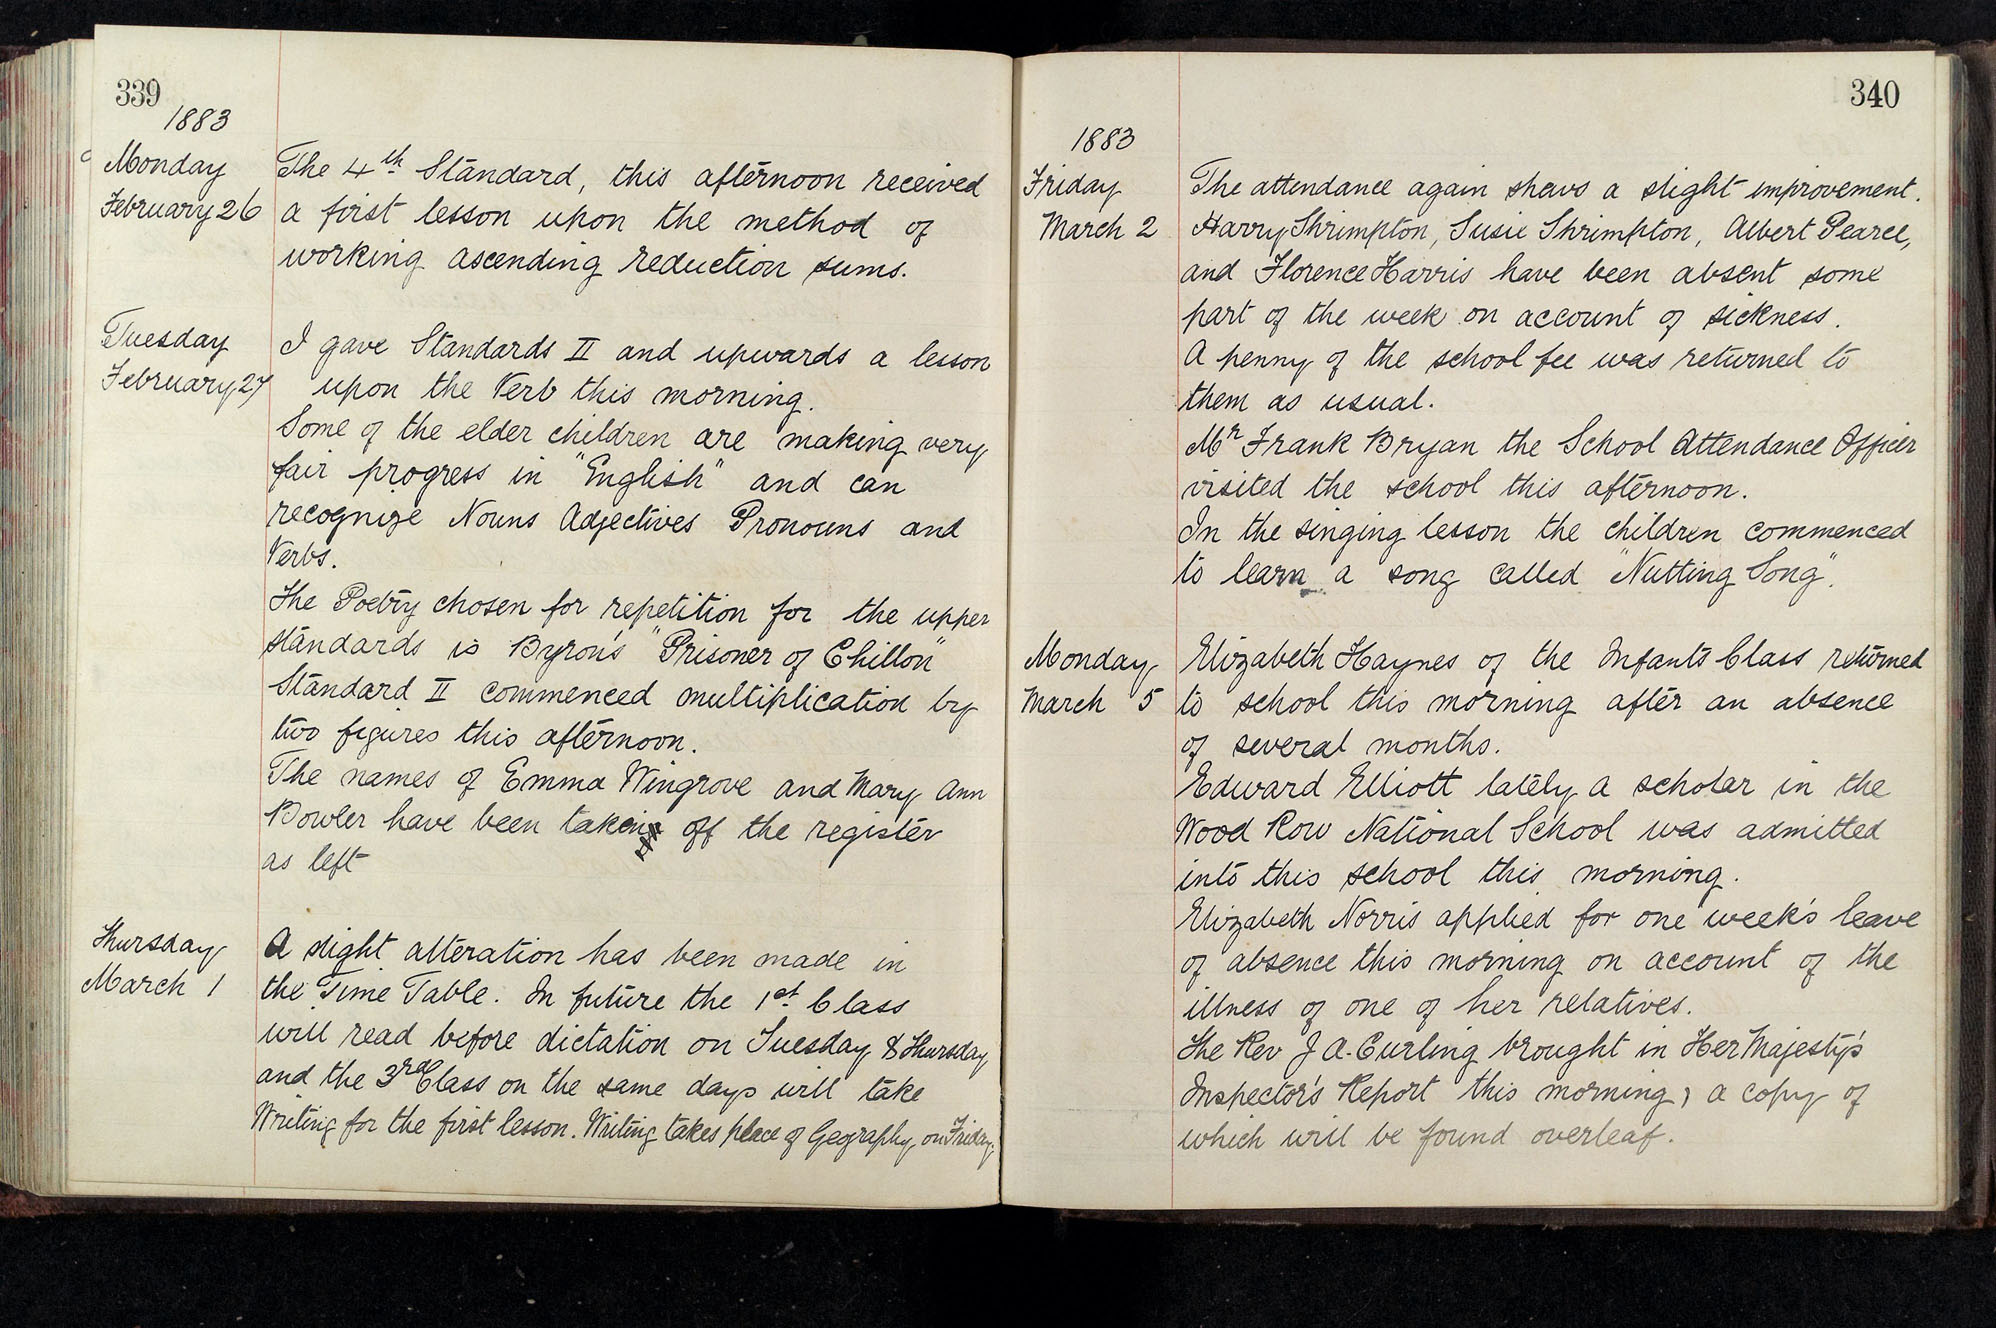 339
1883
Monday
February 26
The 4th Standard, this afternoon received
a first lesson upon the method of
working ascending reduction sums.
Tuesday
February 27
I gave Standards II and upwards a lesson
upon the Verb this morning.
Some of the elder children are making very
fair progress in "English" and can
recognize Nouns Adjectives Pronouns and
Verbs.
The Poetry chosen for repetition for the upper
standards is Byron's "Prisoner of Chillon"
Standard II commenced multiplication by
two figures this afternoon.
The names of Emma Wingrove and Mary Ann
Bowler have been taken off the register
as left
Thursday
March 1
A slight alteration has been made in
the Time Table. In future the 1st Class
will read before dictation on Tuesday & Thursday
and the 3rd Class on the same days will take
Writing for the first lesson. Writing takes place of Geography on Friday.
340
1883
Friday
March 2
The attendance again shews a slight improvement.
Harry Shrimpton, Susie Shrimpton, Albert Pearce,
and Florence Harris have been absent some
part of the week on account of sickness.
A penny of the school fee was returned to
them as usual.
Mr Frank Bryan the School Attendance Officer
visited the school this afternoon.
In the singing lesson the children commenced
to learn a song called "Nutting Song".
Monday
March 5
Elizabeth Haynes of the Infants Class returned
to school this morning after an absence
of several months.
Edward Elliott lately a scholar in the
Wood Row National School was admitted
into this school this morning.
Elizabeth Norris applied for one week's leave
of absence this morning on account of the
illness of one of her relatives.
The Rev J A. Curling brought in Her Majesty's
Inspector's Report this morning, a copy of
which will be found overleaf.